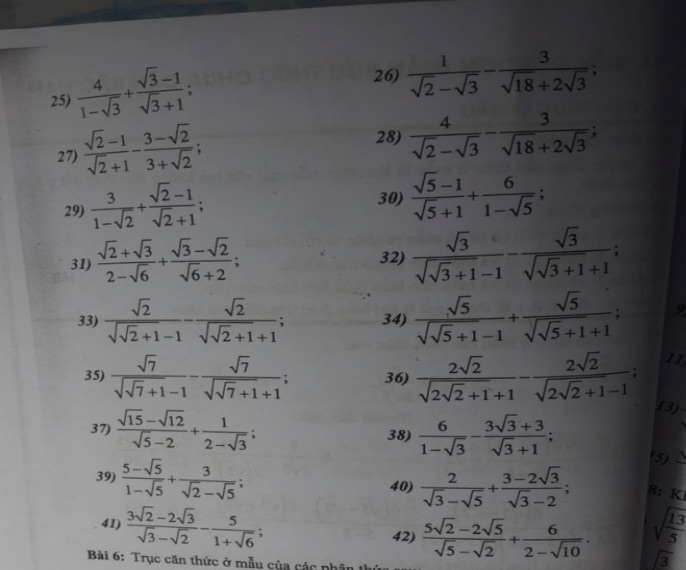 25) \frac{4}{1-\sqrt{3}}+\frac{\sqrt{3}-1}{\sqrt{3}+1};
26) \frac{1}{\sqrt{2}-\sqrt{3}}-\frac{3}{\sqrt{18}+2\sqrt{3}};
27) \frac{\sqrt{2}-1}{\sqrt{2}+1}-\frac{3-\sqrt{2}}{3+\sqrt{2}};
28) \frac{4}{\sqrt{2}-\sqrt{3}}-\frac{3}{\sqrt{18}+2\sqrt{3}};
29) \frac{3}{1-\sqrt{2}}+\frac{\sqrt{2}-1}{\sqrt{2}+1};
30) \frac{\sqrt{5}-1}{\sqrt{5}+1}+\frac{6}{1-\sqrt{5}};
31) \frac{\sqrt{2}+\sqrt{3}}{2-\sqrt{6}}+\frac{\sqrt{3}-\sqrt{2}}{\sqrt{6}+2};
32) \frac{\sqrt{3}}{\sqrt{\sqrt{3}+1}-1}-\frac{\sqrt{3}}{\sqrt{\sqrt{3}+1}+1};
33) \frac{\sqrt{2}}{\sqrt{\sqrt{2}+1}-1}-\frac{\sqrt{2}}{\sqrt{\sqrt{2}+1}+1};
34) \frac{\sqrt{5}}{\sqrt{\sqrt{5}+1}-1}+\frac{\sqrt{5}}{\sqrt{\sqrt{5}+1}+1};
35) \frac{\sqrt{7}}{\sqrt{\sqrt{7}+1}-1}-\frac{\sqrt{7}}{\sqrt{\sqrt{7}+1}+1};
36) \frac{2\sqrt{2}}{\sqrt{2\sqrt{2}+1}+1}-\frac{2\sqrt{2}}{\sqrt{2\sqrt{2}+1}-1};
37) \frac{\sqrt{15}-\sqrt{12}}{\sqrt{5}-2}+\frac{1}{2-\sqrt{3}};
38) \frac{6}{1-\sqrt{3}}-\frac{3\sqrt{3}+3}{\sqrt{3}+1};
39) \frac{5-\sqrt{5}}{1-\sqrt{5}}+\frac{3}{\sqrt{2}-\sqrt{5}};
40) \frac{2}{\sqrt{3}-\sqrt{5}}+\frac{3-2\sqrt{3}}{\sqrt{3}-2};
41) \frac{3\sqrt{2}-2\sqrt{3}}{\sqrt{3}-\sqrt{2}}-\frac{5}{1+\sqrt{6}};
42) \frac{5\sqrt{2}-2\sqrt{5}}{\sqrt{5}-\sqrt{2}}+\frac{6}{2-\sqrt{10}}.
Bài 6: Trục căn thức ở mẫu của các phân thức